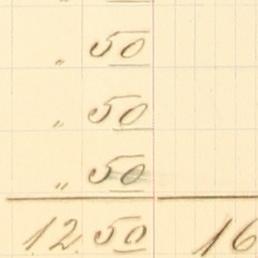 " 50
" 50
" 50
12 50 16